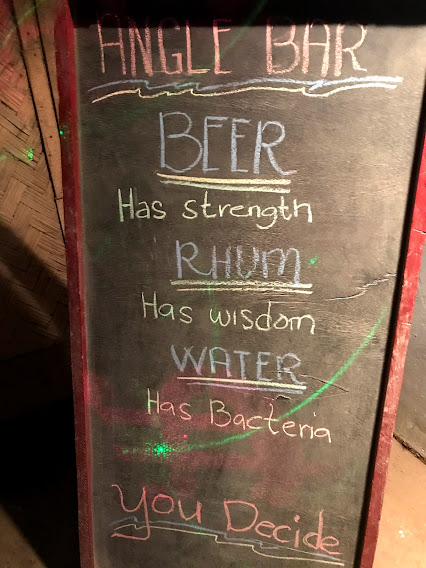 ANGLE BAR
BEER
Has strength
RHUM
Has wisdom
WATER
Has Bacteria
You Decide